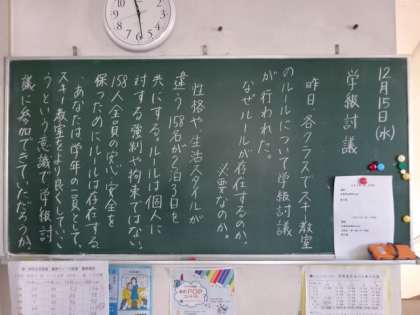 12月15日(水)
学級討議
昨日、各クラスでスキー教室
のルールについて学級討議
が行われた。
なぜルールが存在するのか、
必要なのか。
性格や生活スタイルが
違う158名が2泊3日を
共にする。ルールは個人に
対する強制や拘束ではない。
158人全員の安心・安全を
保つためにルールは存在する。
あなたは学年の一員として、
スキー教室をより良くしていこ
うという意識で学級討
議に参加できていただろうか。